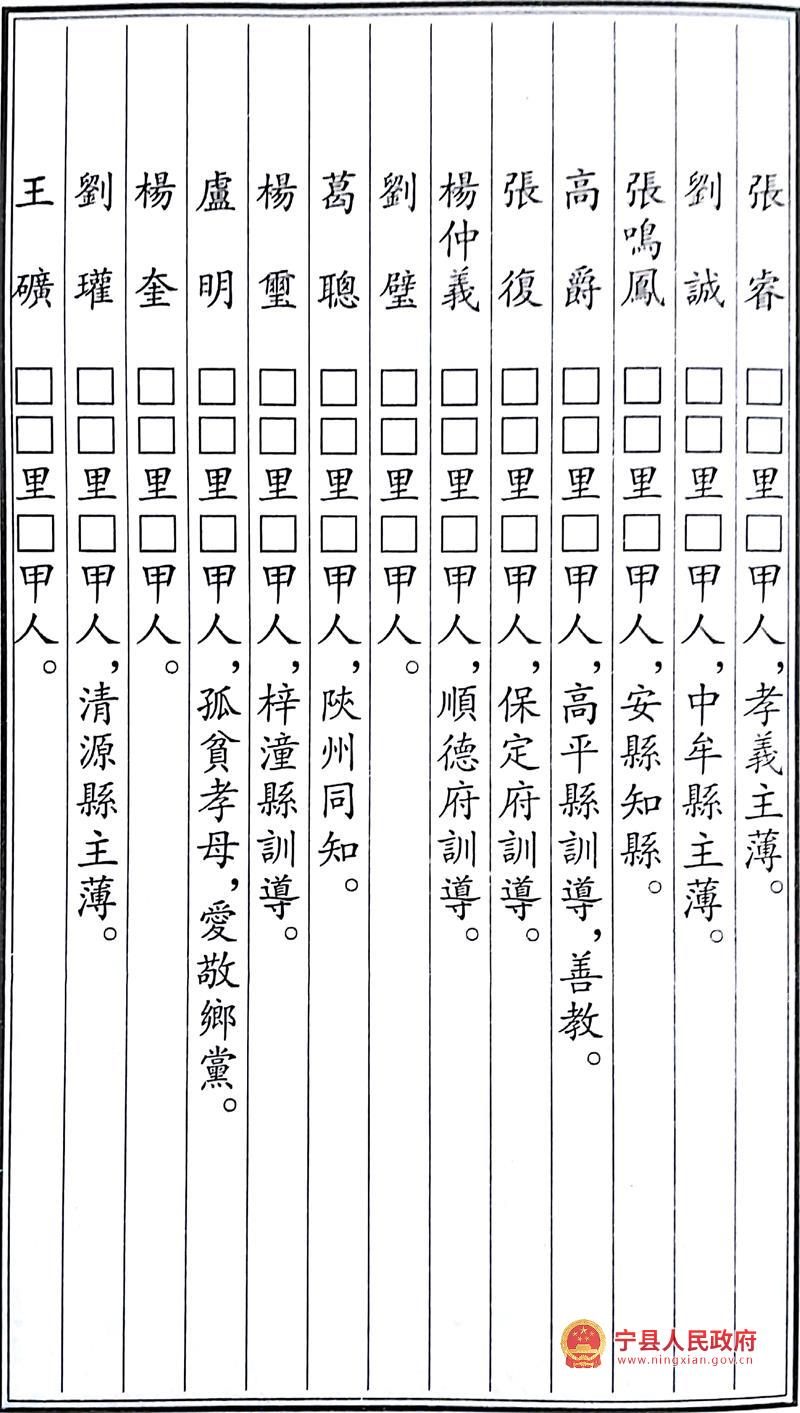 張睿 □□里□甲人，孝義主薄。
劉誠 □□里□甲人，中牟縣主薄。
張鳴鳳 □□里□甲人，安縣知縣。
高爵 □□里□甲人，高平縣訓導，善教。
張復 □□里□甲人，保定府訓導。
楊仲義 □□里□甲人，順德府訓導。
劉璧 □□里□甲人。
葛聰 □□里□甲人，陝州同知。
楊璽 □□里□甲人，梓潼縣訓導。
盧明 □□里□甲人，孤貧孝母，愛敬鄉黨。
楊奎 □□里□甲人。
劉瓘 □□里□甲人，清源縣主薄。
王礦 □□里□甲人。
宁县人民政府
www.ningxian.gov.cn